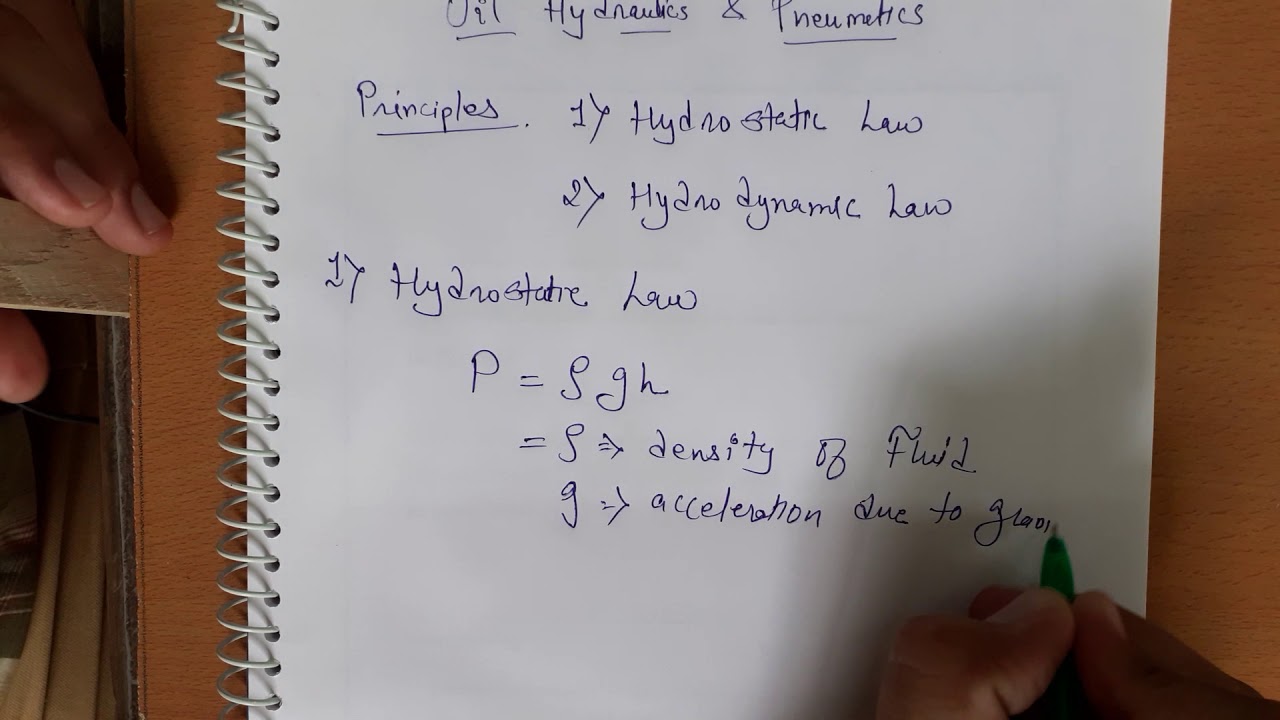 Oil Hydraulics & Pneumatics
Principles. 1) Hydrostatic Law
2) Hydro dynamic Law
1) Hydrostatic Law
P = ρgh
= ρ ⇒ density of Fluid
g ⇒ acceleration due to